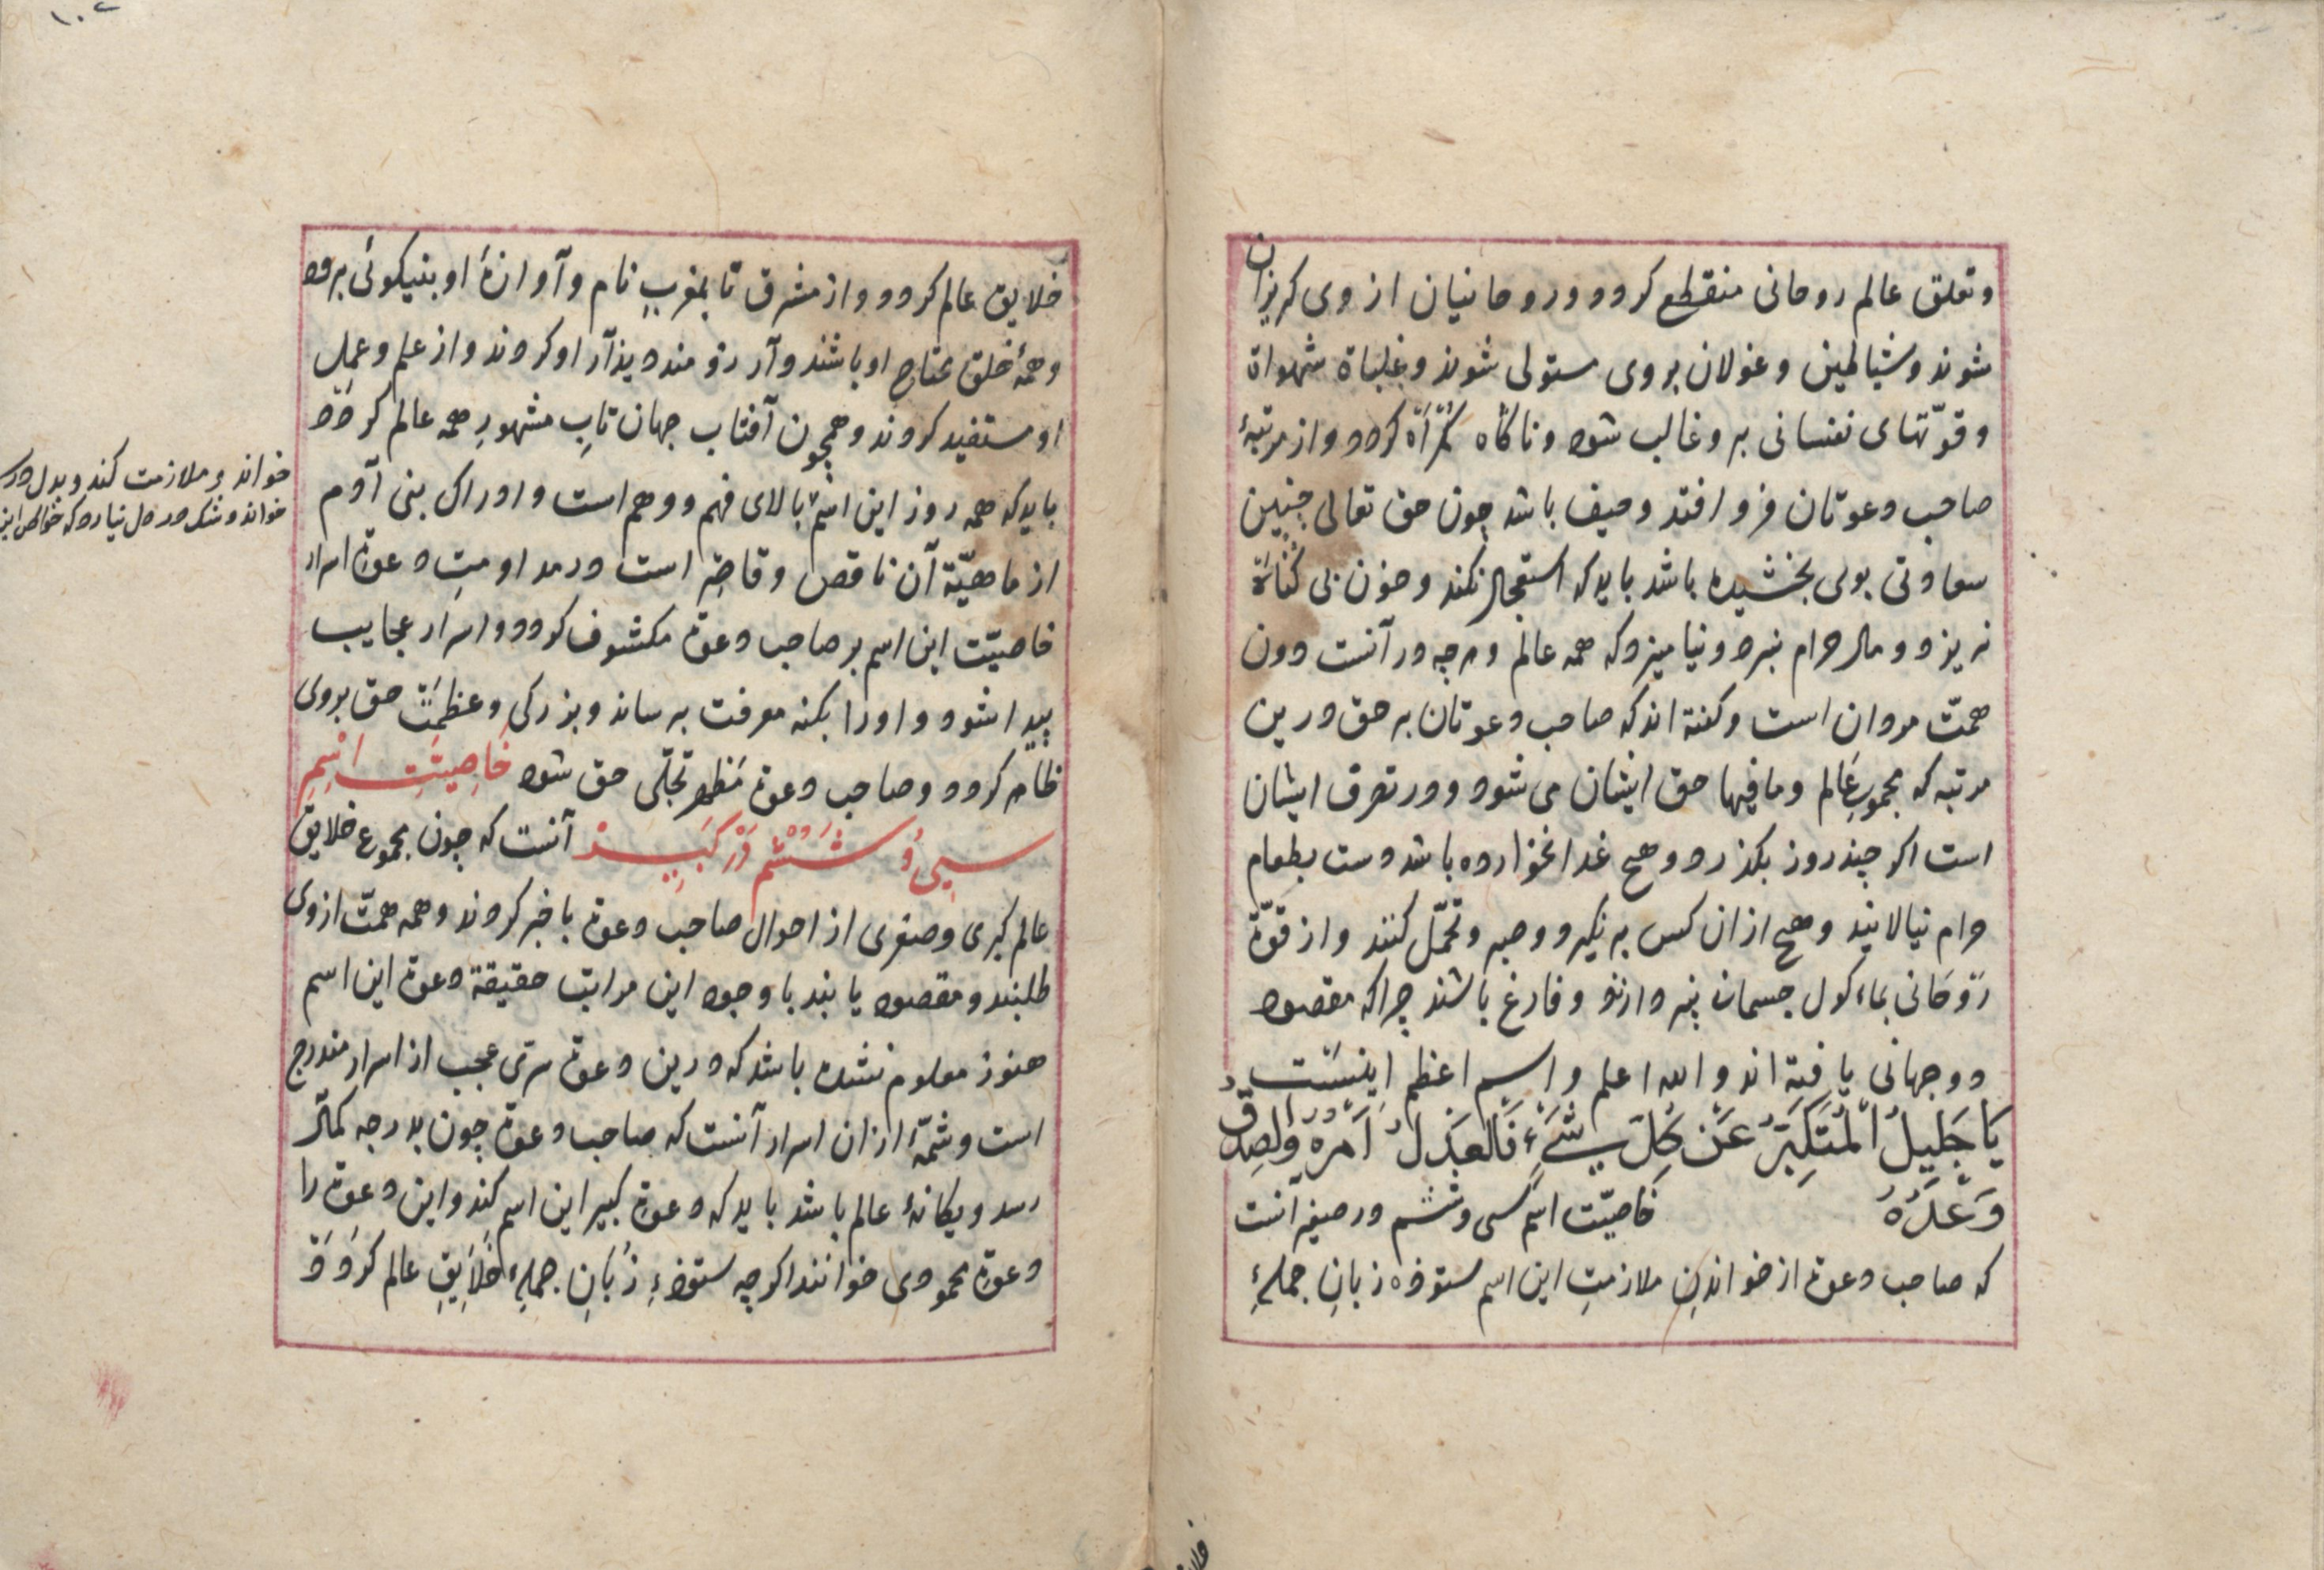 وتعلق عالم روحانی منقطع کردد وروحانیان از وی کریزان
شوند وشیاطین وغولان بروی مستولی شوند وغلباة شهواة
وقوّتهای نفسانی برو غالب شود وناکاه کمراه کردد واز مرتبۀ
صاحب دعوتان فرو افتد وحیف باشد چون حق تعالی چنین
سعادتی بوی بخشیده باشد باید که استعجال نکند وخون بی کناة
نریزد ومال حرام نبرد ونیامیزد که همه عالم وهرچه در آنست دون
همّت مردان است وکفته اند که صاحب دعوتان به حق درین
مرتبه که مجموع عَالم ومافیها حق ایشان می شود ودر تصرف ایشان
است اکر چند روز بکذرد وهیچ غدا نخوارده باشد دست بطعام
حرام نیالایند وهیچ ازان کس برنکیرد وصبر وتحمّل کنند واز قوّة
رَوحَانی بماءکول جسمان نپردازند وفارغ باشند چراکه مقصود
دوجهانی یافته اند والله اعلم واسم اعظم اینست
یَا جَلِیلُ الْمُتَکَبِّرَ عَنْ کُلِّ شَیْءٍ فَالْعَدْلُ اَمْرُهُ وَالصِدْقُ
وَعْدُهُ خَاصیّت اسم سی وششم در صغیر آنست
که صاحب دعوت از خواندنِ ملازمتِ این اسم ستوده زبانِ جملهٔ
خلایق عالم کردد واز مشرق تا بمغرب نام وآوازۀ او بنیکوئی برود
وهمۀ خلق محتاج او باشند وآرزومند ویذآر او کردند واز علم وعمل
او مستفید کردند وهمچون آفتاب جهان تابِ مشهورِ همه عالم کردد
باید که همه روز این اسم بالای فهم ووهم است وادراک بنی آدم
از ماهیّة آن ناقص وقاصِر است در مداومتِ دعوة اسرار
خاصیّت این اسم بر صاحب دعوت مکشوف کردد واسرار عجایب
پیدا شود واورا بکنه معرفت برساند وبزرکی وعظمت حق بروی
ظاهر کردد وصاحب دعوت مَظهر تجلّی حق شود خَاصِیَتِ اِسْمِ
سیی وُ شَشُمْ دَرْ کَبِیرْ آنست که چون مجموع خلایق
عالم کبری وصغری از احوال صاحب دعوت باخبر کردند وهمه همّت ازوی
طلبند ومقصود یابند با وجود این مراتب حقیقة دعوت این اسم
هنوز معلوم نشده باشد که درین دعوت سرّی عجب از اسرار مندرج
است وشمّۀ ازان اسرار آنست که صاحب دعوت چون بدرجه کمال
رسد ویکانۀ عالم باشد باید که دعوة کبیر این اسم کند واین دعوت را
دعوة محمودی خوانند اکرچه ستودۀ زُبَانِ جملهٔ خَلاَیِقِ عالم کردد
خواند وملازمت کند وبدل
خواند وشک در دل نیارد که خواص